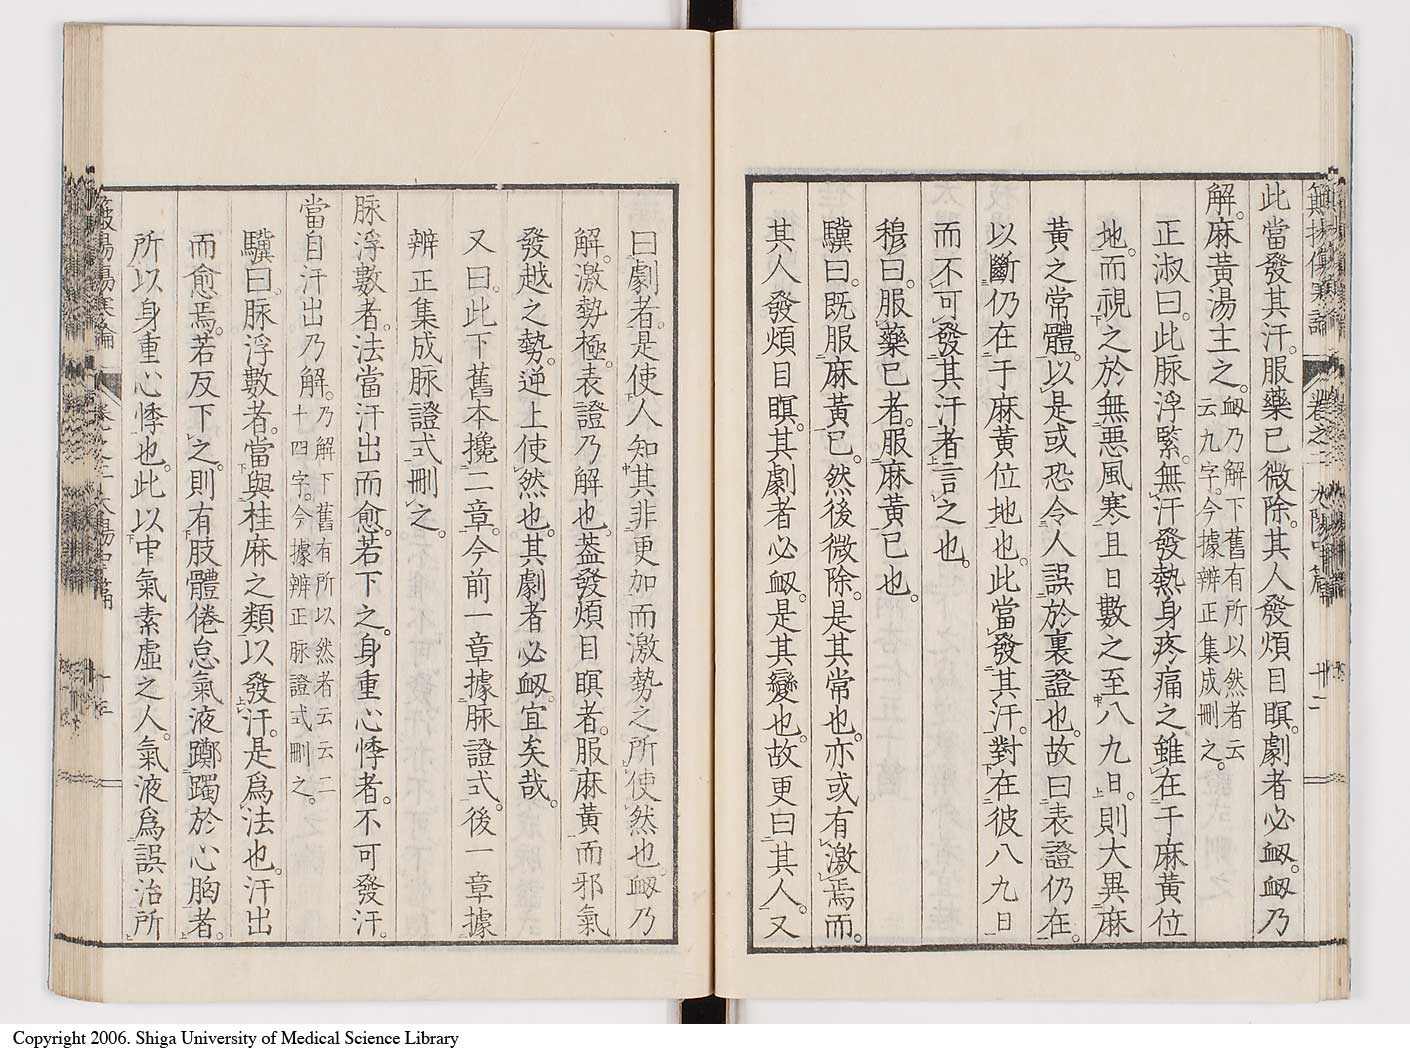 此當發其汗。服藥已微除。其人發煩目瞑。劇者必衂。衂乃
解。麻黃湯主之。衂乃解下舊有所以然者云云九字。今據辨正集成刪之。
正淑曰。此脉浮緊。無汗發熱身疼痛之雖在于麻黃位
地。而視之於無惡風寒且日數之至八九日。則大異麻
黃之常體。以是或恐令人誤於裏證也。故曰表證仍在。
以斷仍在于麻黃位地也。此當發其汗。對在彼八九日
而不可發其汗者言之也。
穆曰。服藥已者。服麻黃已也。
驥曰。既服麻黃已。然後微除。是其常也。亦或有激焉而。
其人發煩目瞑。其劇者必衂。是其變也。故更曰其人。又
曰劇者。是使人知其非更加而激勢之所使然也。衂乃
解。激勢極。表證乃解也。蓋發煩目瞑者。服麻黃而邪氣
發越之勢。逆上使然也。其劇者必衂。宜矣哉。
又曰。此下舊本攙二章。今前一章據脉證式。後一章據
辨正集成脉證式刪之。
脉浮數者。法當汗出而愈。若下之。身重心悸者。不可發汗。
當自汗出乃解。乃解下舊有所以然者云云二十四字。今據辨正脉證式刪之。
驥曰。脉浮數者。當與桂麻之類以發汗。是爲法也。汗出
而愈焉。若反下之。則有肢體倦怠氣液躑躅於心胸者。
所以身重心悸也。此以中氣素虛之人。氣液爲誤治所